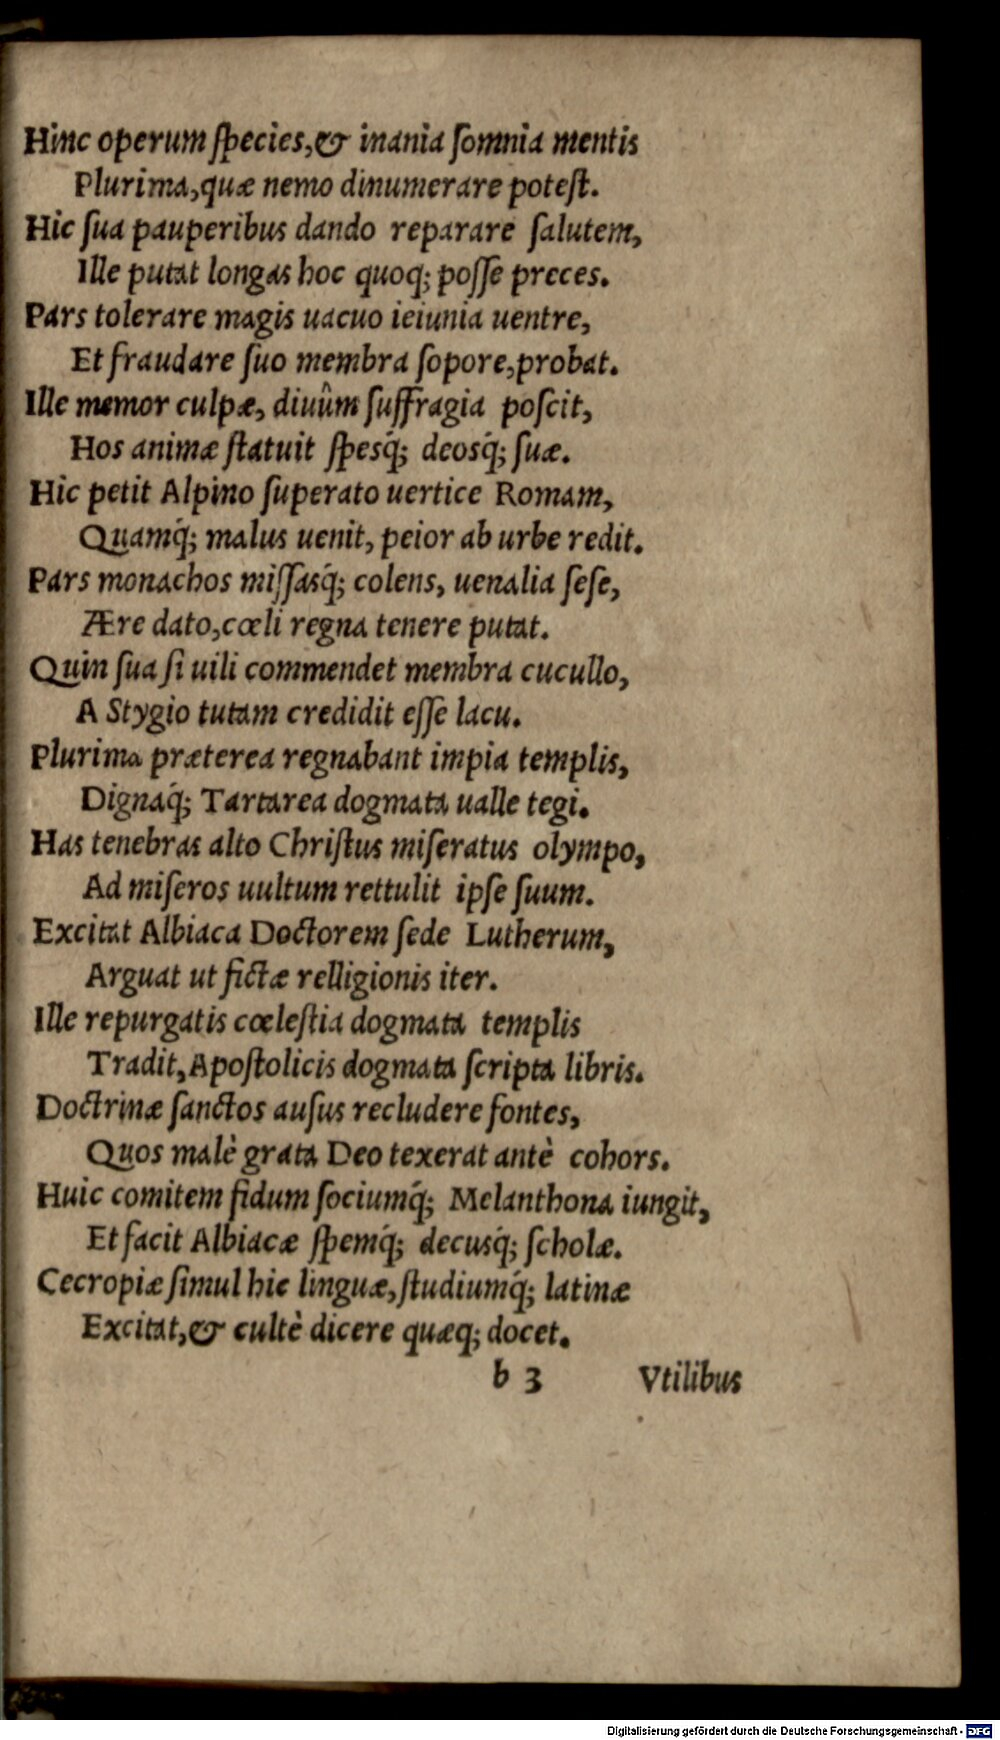 Hinc operum ſpecies,& inania ſomnia mentis
Plurima,quæ nemo dinumerare poteſt.
Hic ſua pauperibus dando reparare ſalutem,
Ille putat longas hoc quoq; poſſe preces.
Pars tolerare magis uacuo ieiunia uentre,
Et fraudare ſuo membra ſopore,probat.
Ille memor culpæ, diuûm ſuffragia poſcit,
Hos animæ ſtatuit ſpesq́; deosq́; ſuæ.
Hic petit Alpino ſuperato uertice Romam,
Quamq́; malus uenit, peior ab urbe redit.
Pars monachos miſſasq́; colens, uenalia ſeſe,
Ære dato,cœli regna tenere putat.
Quin ſua ſi uili commendet membra cucullo,
A Stygio tutam credidit eſſe lacu.
Plurima præterea regnabant impia templis,
Dignaq́; Tartarea dogmata ualle tegi.
Has tenebras alto Chriſtus miſeratus olympo,
Ad miſeros uultum rettulit ipſe ſuum.
Excitat Albiaca Doctorem ſede Lutherum,
Arguat ut fictæ relligionis iter.
Ille repurgatis cœleſtia dogmata templis
Tradit,Apoſtolicis dogmata ſcripta libris.
Doctrinæ ſanctos auſus recludere fontes,
Quos malè grata Deo texerat antè cohors.
Huic comitem fidum ſociumq́; Melanthona iungit,
Et facit Albiacæ ſpemq́; decusq́; ſcholæ.
Cecropiæ ſimul hic linguæ,ſtudiumq́; latinæ
Excitat,& cultè dicere quæq; docet.
b 3 Vtilibus
Digitalisierung gefördert durch die Deutsche Forschungsgemeinschaft - DFG